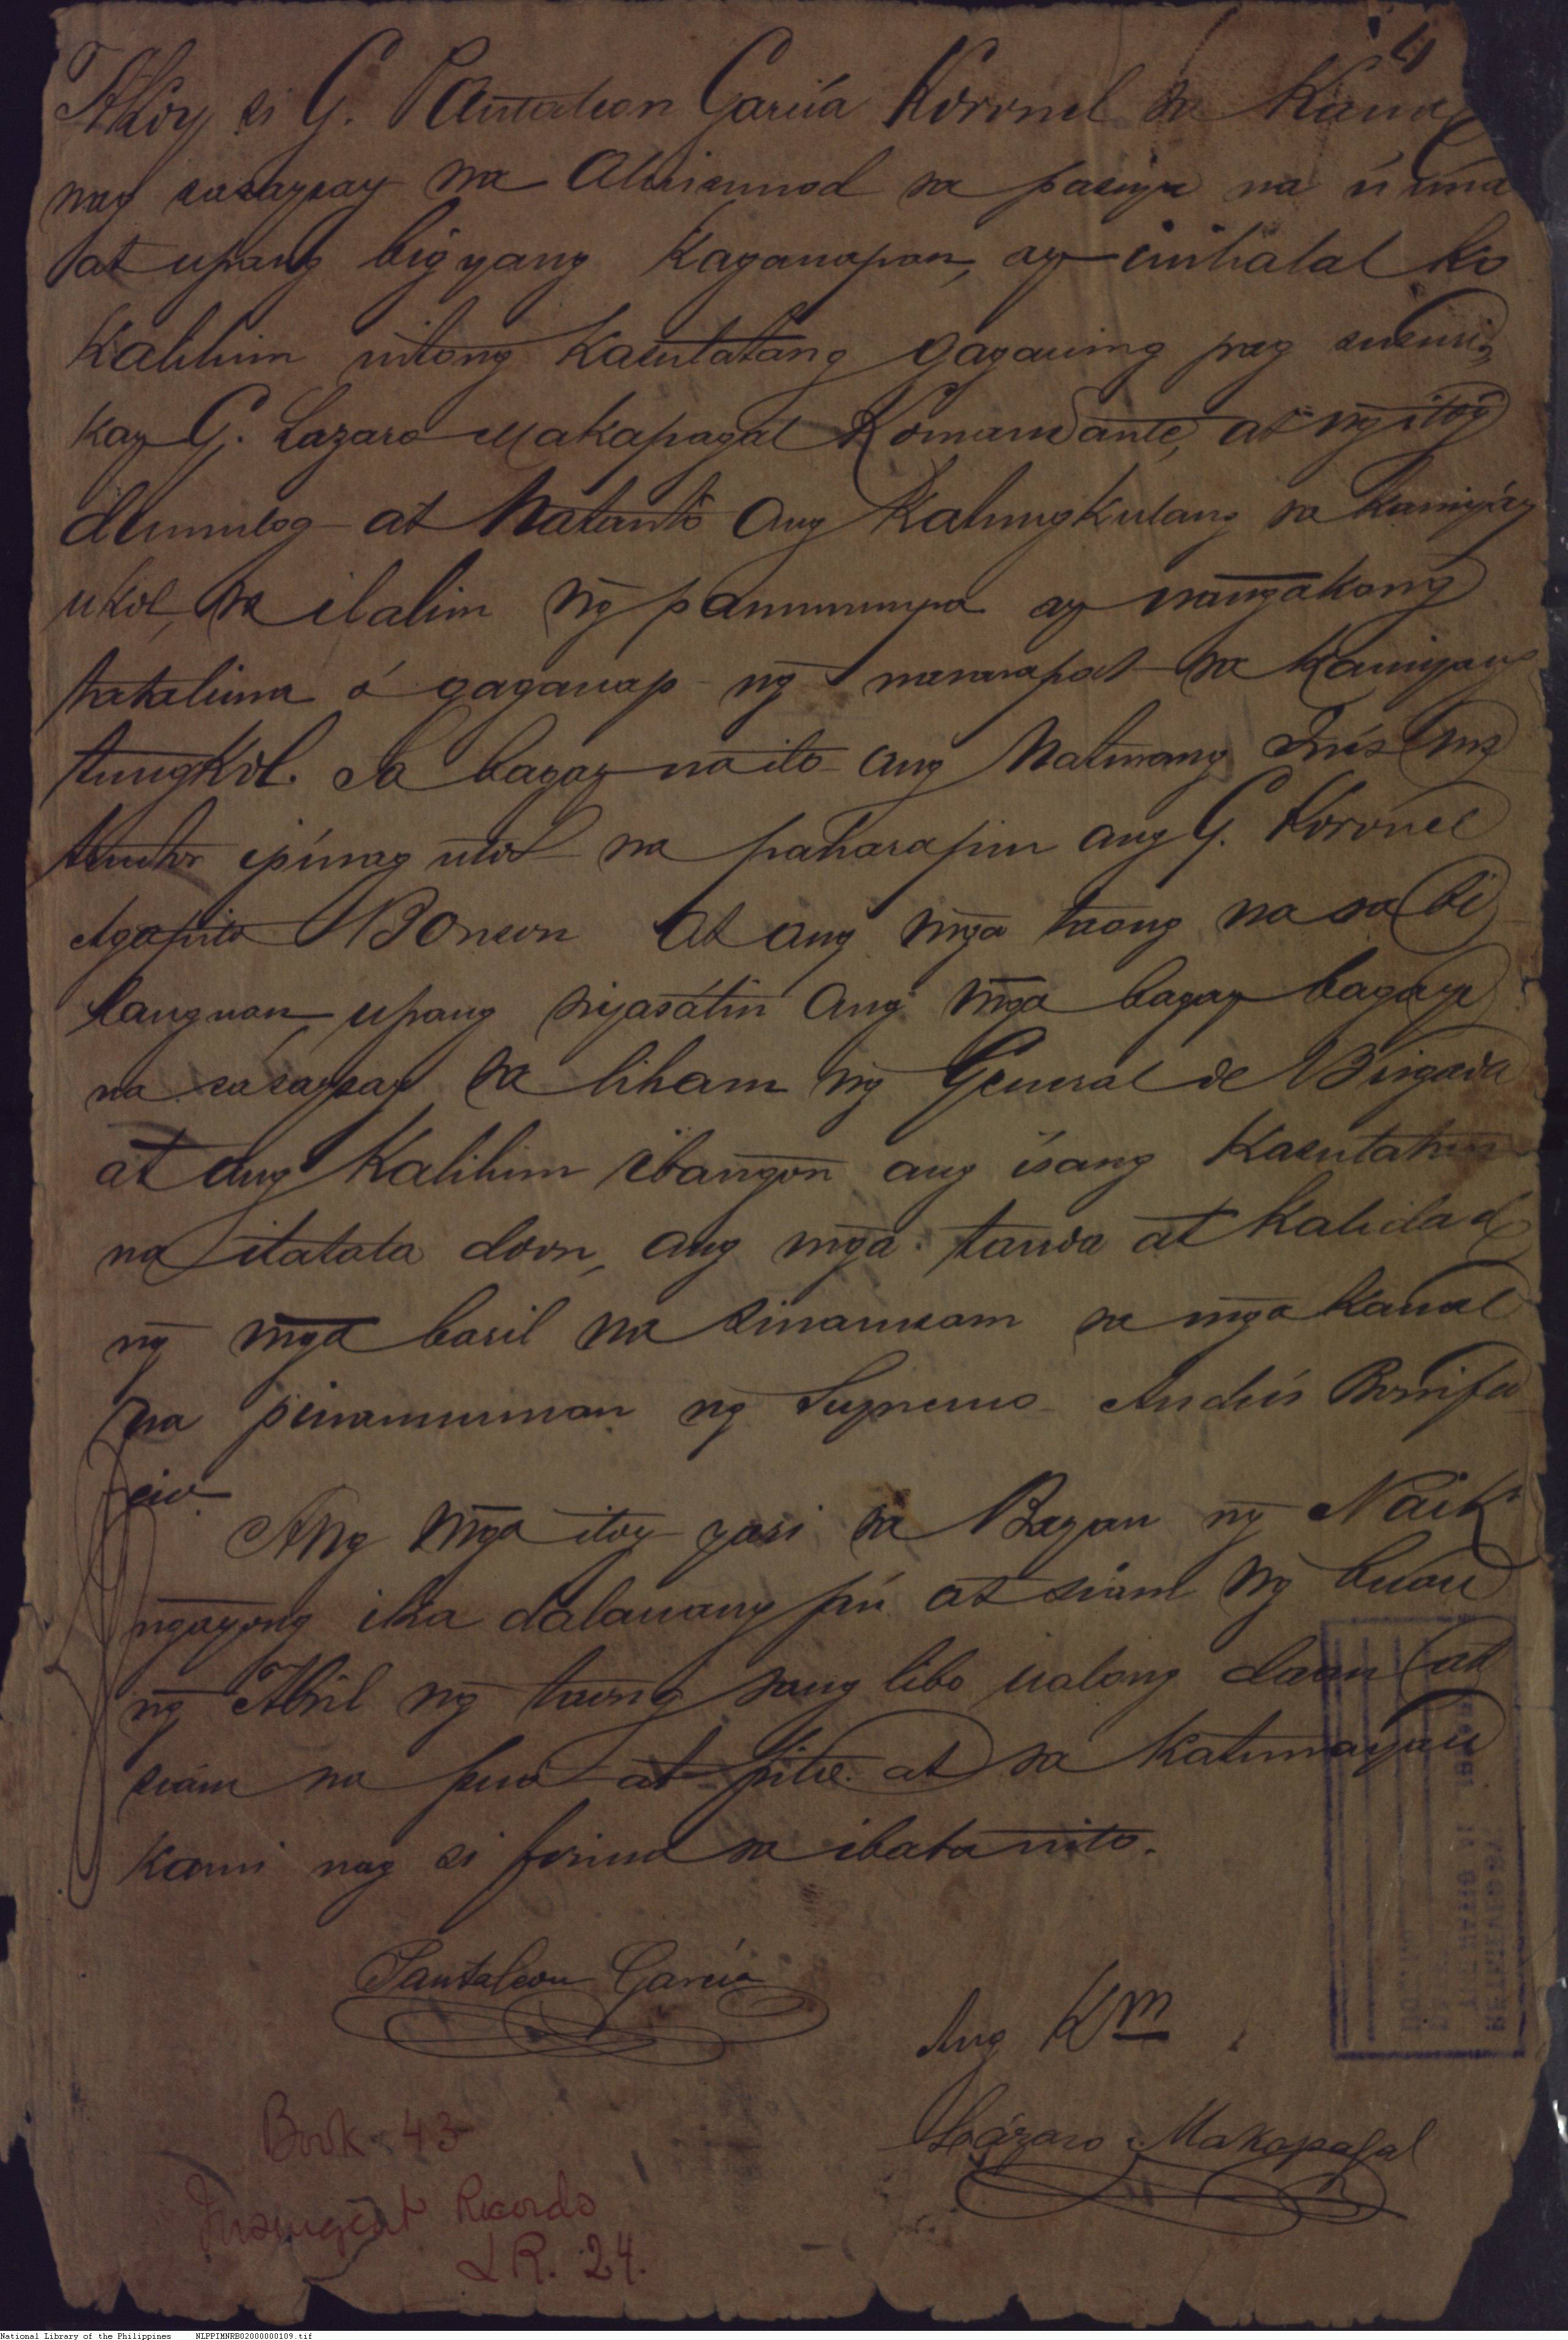 Akoy si G. Pantaleon García Koronel sa Kawal
nag sasaysay na alinsunod sa pasiya na úuna
at upang bigyang kaganapan, ay inihalal ko
Kalihim nitong Kasulatang gagawing pag susuri,
kay G. Lazaro Makapagal Komandante, at ng itoy
dumulog at Matantó Ang Katungkulang sa kaniyay
ukol, sa ilalim ng panunumpa ay nangakong
tatalima ó gaganap ng nararapat sa kaniyang
tungkol. Sa bagay na ito ang Naturang Jués Ins
truktor ipinag utos na paharapin ang G. Koronel
Agapito Bonson At ang mga taong na sa bi
languan, upang siyasátin Ang mga bagay bagay
na sasaysay sa liham ng General de Birgada
at ang Kalihim ibangon ang ísang Kasulatan
na itatala doon, ang mga tanda at kalidad
ng mga baril na sinamsam sa mga kawal
na pinamumunuan ng Supremo Andrés Bonifa
cio.
Ang mga itoy yari sa Bayan ng Naik
ngayong ika dalawang pú at siam ng buan
ng Abril ng taong sang libo walong daan at
siám na puo at pito. at sa katunayan
kami nag si firma sa ibaba nito.
Pantaleon García
Ang Km
Lázaro Makapagal
Book 43
Insurgent Records
L R. 24.
National Library of the Philippines NLPPIMNRB02000000109.tif